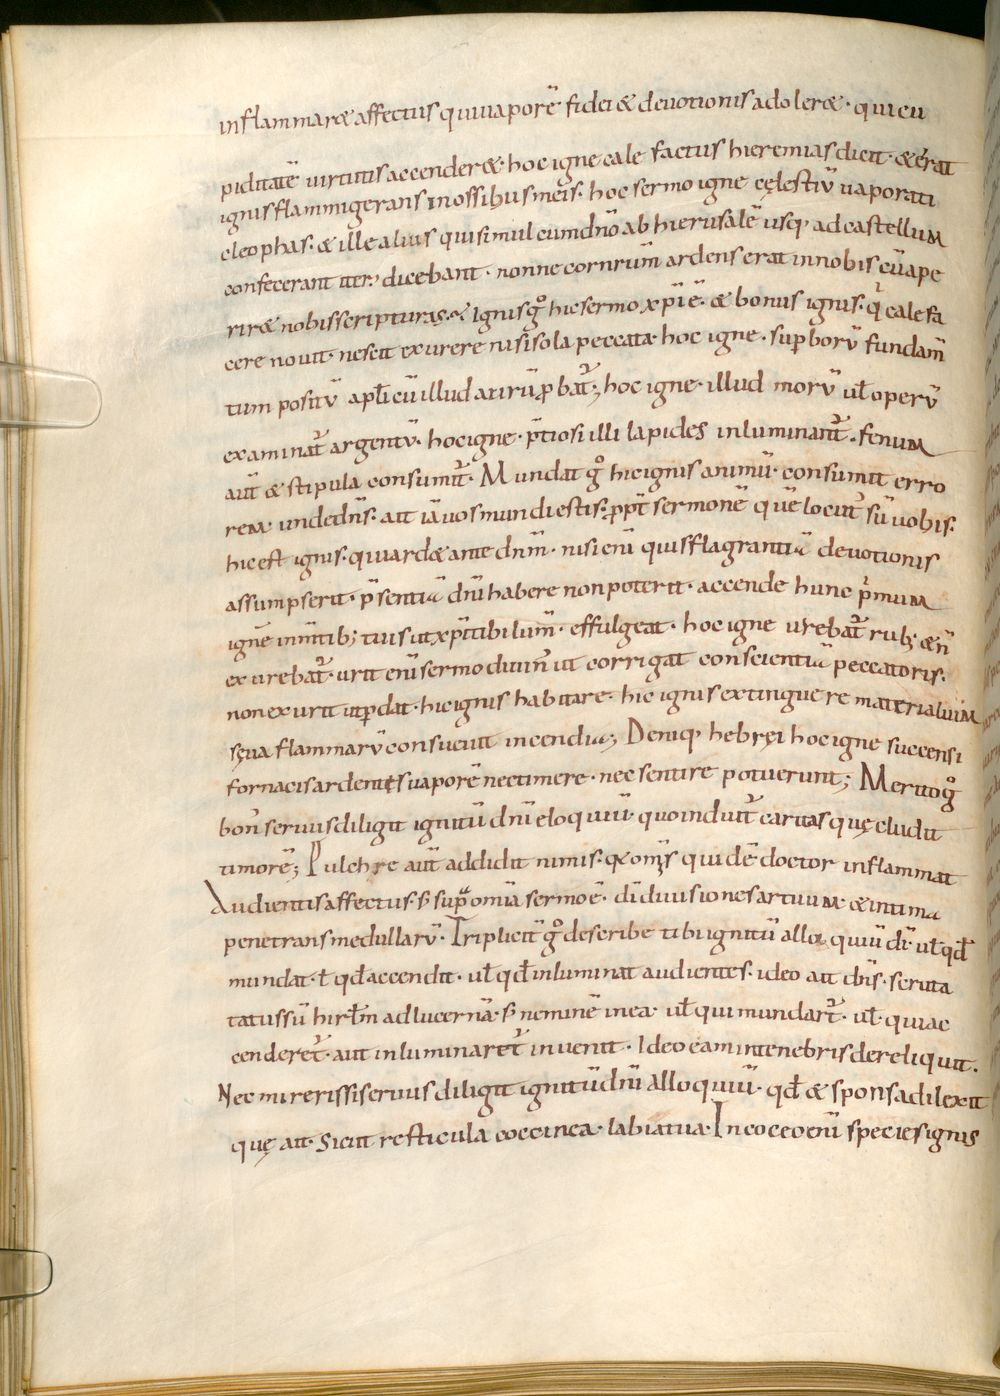 inflammaræ affectus quivaporē fidei & devotionis adoleræ · qui cu
piditatē virtutis accenderæ · hoc igne cale factus hieremias dicit · & erat
ignis flammigerans in ossibus meis · hoc sermo igne cęlestiū vaporati
cleophas · & ille alius qui simul cum dn̄o ab hierusalē usq; ad castellum
confecerant iter; dicebant · nonne cor nr̄um ardens erat in nobis cū ape
riræ nobis scripturas · Ignis g̊ hic sermo xp̄i ē · & bonus ignis · qͥ calefa
cere novit · nescit exurere nisi sola peccata · hoc igne · sup̱borū fundam̄
tum positū apl̄i cū illud aurū p̱bat᷑; hoc igne · illud morū ul̄ operū
examinat᷑ argentū · hoc igne · p̄tiosi illi lapides inluminant᷑ · fenum
aut̄ & stipula consumit᷑ · Mundat g̊ hic ignis animū · consumit erro
rem · unde dn̄s · ait iā vos mundi estis · ꝓpt̄ sermonē quē locut᷑ sū vobis ·
hic est ignis · qui ardæ ante dn̄m · nisi eni quis flagrantiā devotionis
assumpserit · p̄sentiā dn̄i habere non poterit · accende hunc pͥmum
ignē in m̄tib; tuis ut xp̄i tibi lum̄ · effulgeat · hoc igne urebat᷑ rub; & n̄
exurebat᷑ · urit eni sermo divin᷑ ut corrigat conscientiā peccatoris ·
non exurit ut p̱dat · hic ignis habitare · hic ignis extinguere materialium
sęva flammarū consuevit incendia; Deniq; hebręi hoc igne succensi
fornacis ardentes vaporē nec timere · nec sentire potuerunt; Merito g̊
bon᷑ servus diligit ignitū dn̄i eloquiū · quo induit᷑ caritas quę cludit
timorē; Pulchre aut̄ addidit nimis · qꝛ om̄s quidē doctor inflammat
Audientis affectus · s̄ supͣ omīa sermo ē · dī divisiones artuum · & intima
penetrans medullarū · Triplicit̄ g̊ describe tibi ignitū alloquiū dī · ul̄ qd̄
mundat · ł qd̄ accendit · ul̄ qd̄ inluminat audientes · ideo ait dn̄s · scruta
tus sū hirl̄m ad lucernā · s̄ neminē in ea · ul̄ qui mundar&᷑ · ul̄ · qui ac
cenderet᷑ · aut inluminaret᷑ invenit · Ideo eam in tenebris dereliquit ·
Nec mireris si servus diligit ignitū dn̄i alloquiū · qd̄ & sponsa dilexit
quę ait · Sicut resticula coccinea · labia tua · In cocco eni species ignis